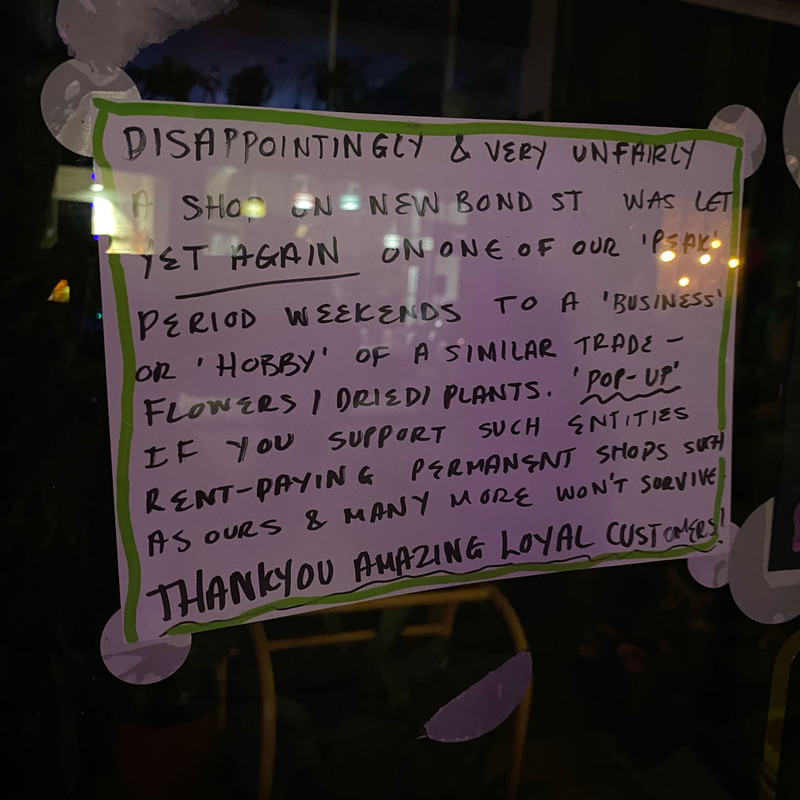 DISAPPOINTINGLY & VERY UNFAIRLY
A SHOP ON NEW BOND ST WAS LET
YET AGAIN ON ONE OF OUR 'PEAK'
PERIOD WEEKENDS TO A 'BUSINESS'
OR 'HOBBY' OF A SIMILAR TRADE -
FLOWERS / DRIED / PLANTS. 'POP-UP'
IF YOU SUPPORT SUCH ENTITIES
RENT-PAYING PERMANENT SHOPS SUCH
AS OURS & MANY MORE WON'T SURVIVE
THANKYOU AMAZING LOYAL CUSTOMERS!